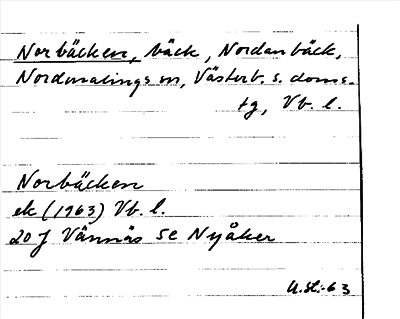 Norbäcken, bäck, Nordanbäck,
Nordmalings sn, Västerb. s. doms.
tg, Vb. l.
Norbäcken
ek (1963) Vb. l.
20J Vännäs SE Nyåker
U.St.-63